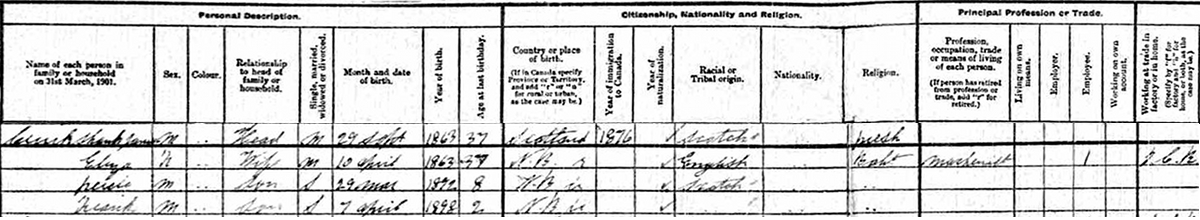 Personal Description. Citizenship, Nationality and Religion. Principal Profession or Trade.
Name of each person in family or household on 31st March, 1901. Sex. Colour. Relationship to head of family or household. Single, married, widowed or divorced. Month and date of birth. Year of birth. Age at last birthday. Country or place of birth. (If in Canada specify Province or Territory, and add "r" or "u" for rural or urban, as the case may be.) Year of immigration to Canada. Year of naturalization. Racial or Tribal origin. Nationality. Religion. Profession, occupation, trade or means of living of each person. (If person has retired from profession or trade, add "r" for retired.) Living on own means. Employer. Employee. Working on own account. Working at trade in factory or in home. (Specify by "f" for factory and "h" for home, or both, as the case may be.)
M .. Head M 29 Sept 1863 37 Scotland 1876 Scotch
Eliza .. Wife M 10 April 1863 N.B. r English Machinist 1
m .. Son S 29 Mar 1892 8 N.B. Scotch ..
Frank M .. Son S 7 April 1898 2 N.B. " ..